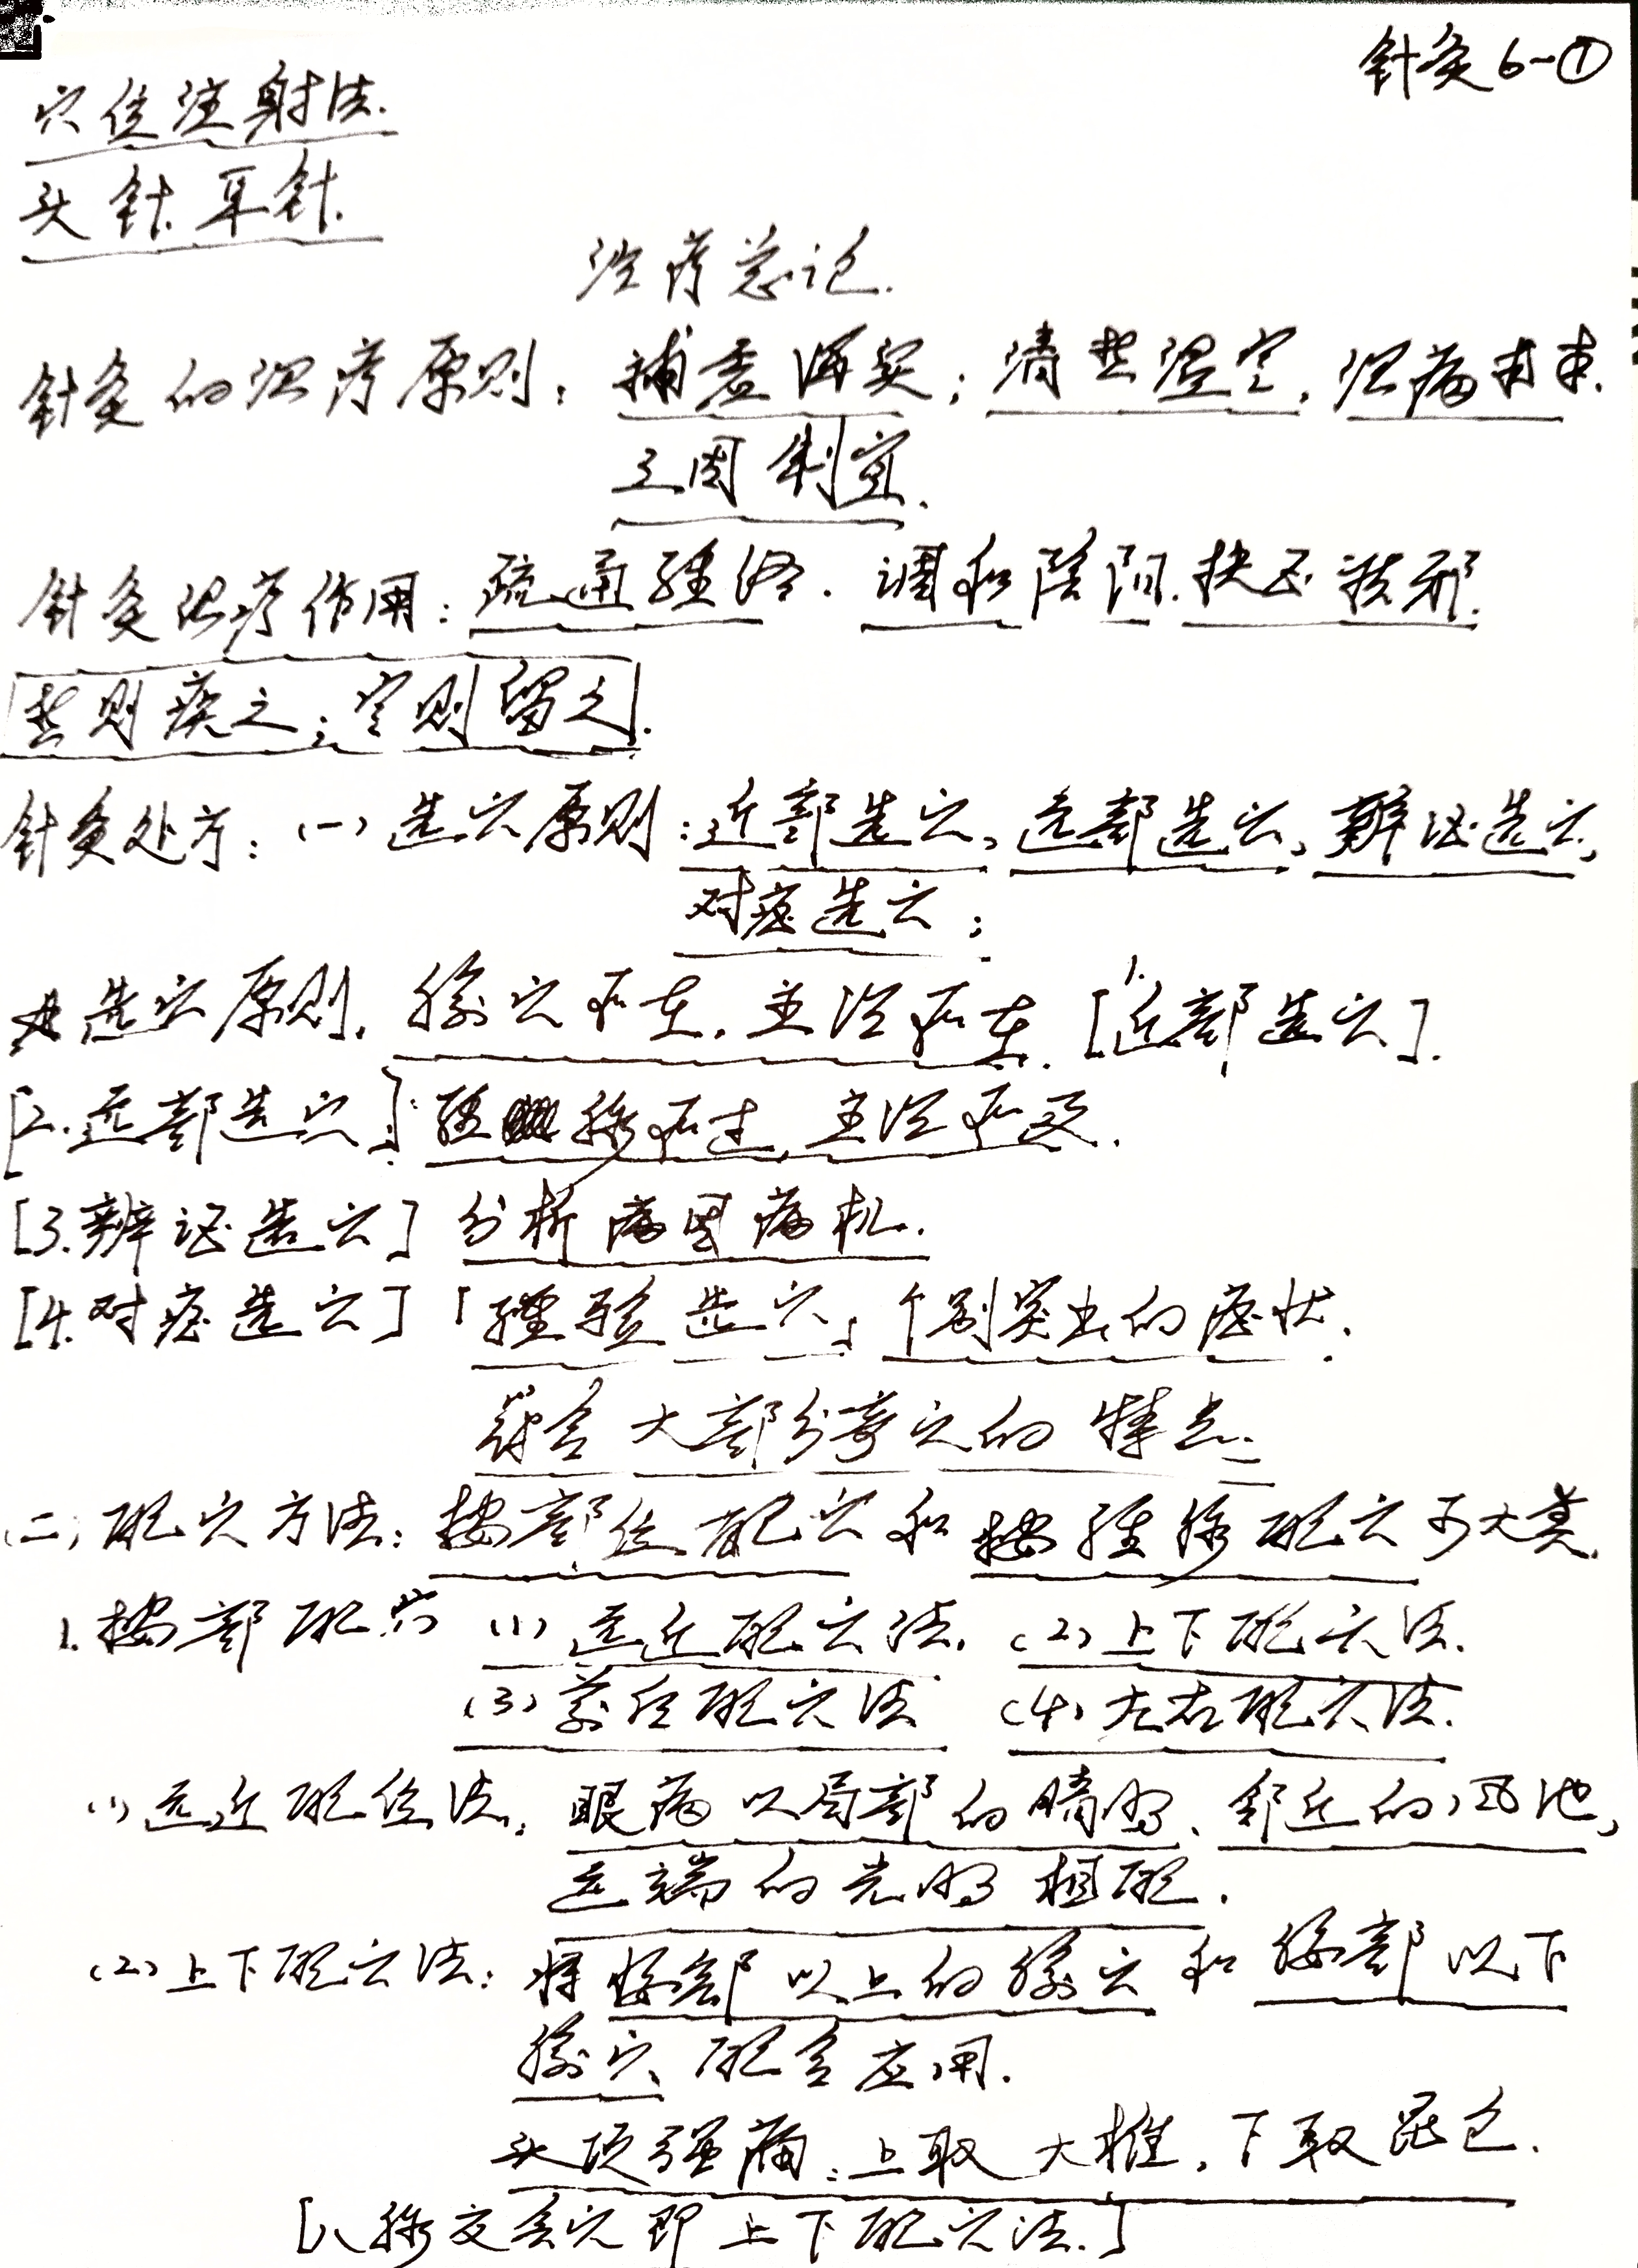 针灸6-①
穴位注射法.
头针.耳针.
治疗总论.
针灸的治疗原则：補虚泻实；清热温寒，治病求本.
三因制宜.
针灸治疗作用：疏通經络.调和陰阳.扶正祛邪.
热则疾之；寒则留之.
针灸处方：(一)选穴原则：近部选穴、远部选穴、辨证选穴、
对症选穴；
选穴原则.腧穴所在.主治所在.[1.近部选穴].
[2.远部选穴]：經脉所过,主治所及.
[3.辨证选穴] 分析病因病机.
[4.对症选穴]「經验选穴」个别突出的症状.
结合大部分奇穴的特点.
(二)配穴方法：按部位配穴和按經脉配穴两大类.
1.按部配穴 (1)远近配穴法. (2)上下配穴法.
(3)前后配穴法 (4)左右配穴法.
(1)远近配位法：眼病以局部的睛明、邻近的风池、
远端的光明相配.
(2)上下配穴法：将腰部以上的腧穴和腰部以下
腧穴配合应用.
头项强痛：上取大椎,下取昆仑.
[八脉交会穴即上下配穴法.]